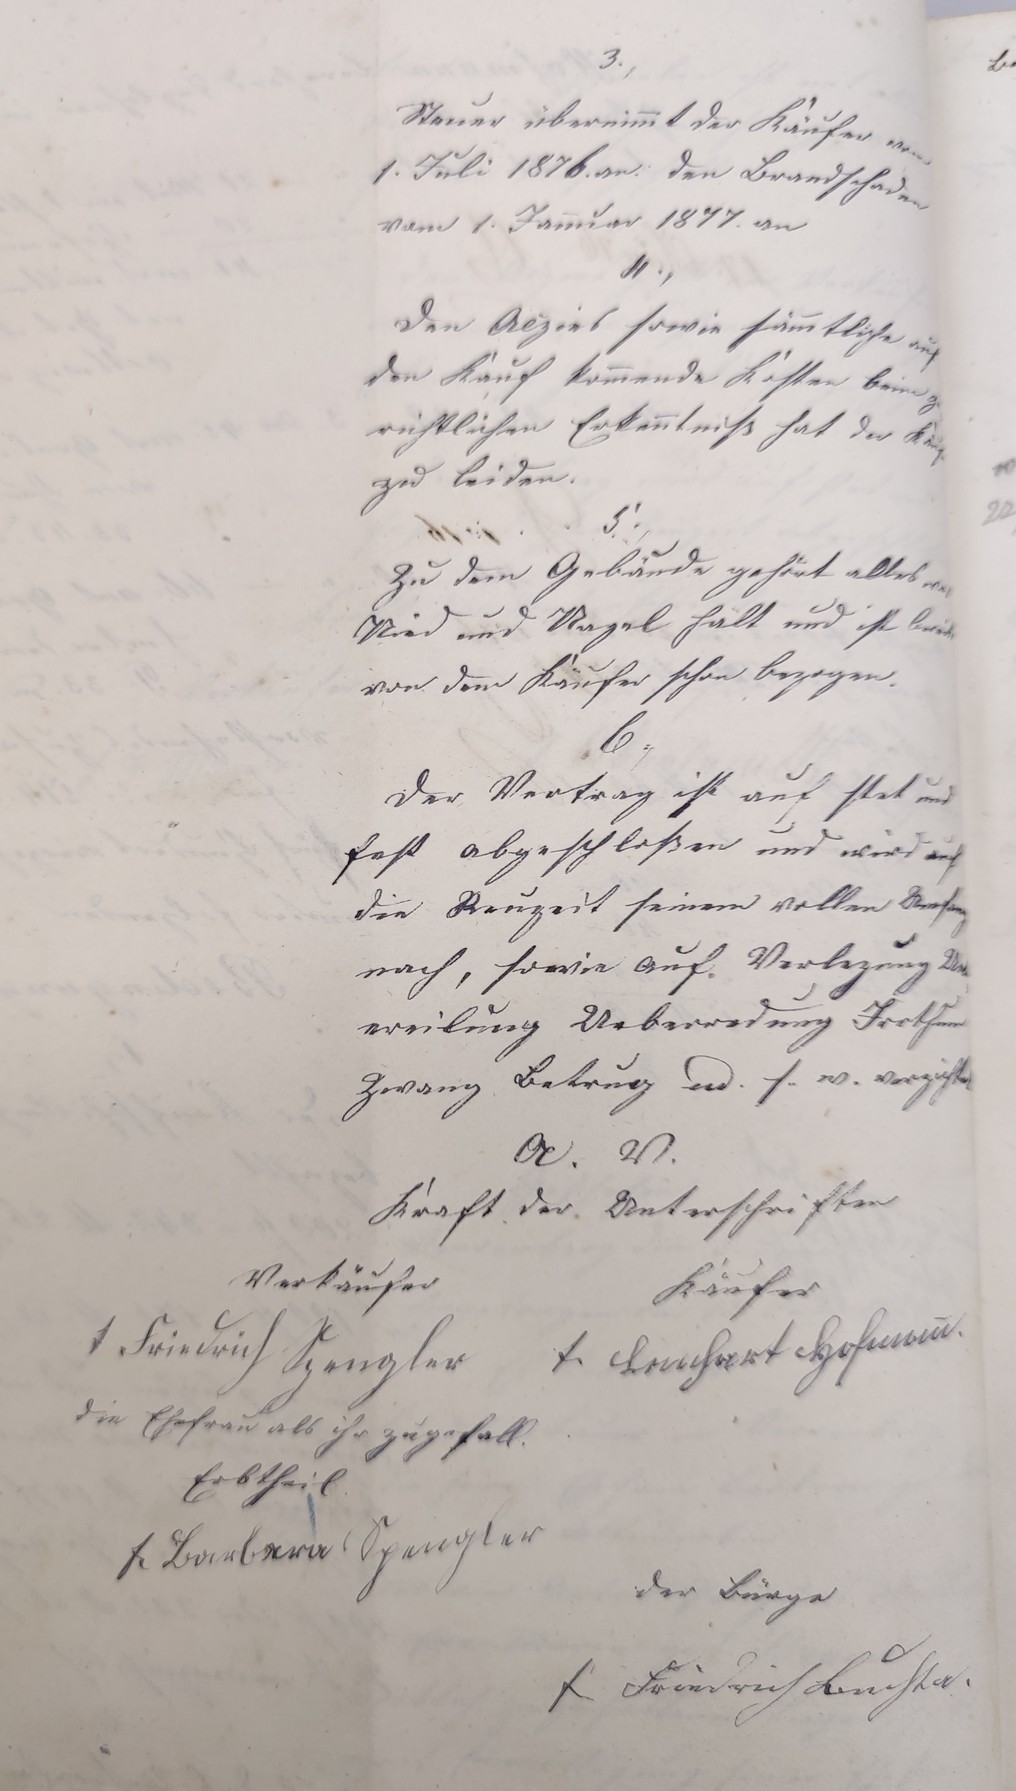 3.,
Steuer übernimmt der Käufer vom
1. Juli 1876. an. den Brandschaden
vom 1. Januar 1877. an
4.,
Den Akzies sowie sämmtliche auf
den Kauf kommende Kosten beim ge
richtlichen Erkenntniß hat der Käuf
zu leiden.
5.,
Zu dem Gebäude gehört alles was
Nied und Nagel hält und ist bereits
von dem Käufer schon bezogen.
6.,
Der Vertrag ist auf stet und
fest abgeschloßen und wird auf
die Reuzeit seinem vollen Umfang
nach, sowie auf Verlezung Ue
ereilung Ueberredung Irrthum
Zwang Betrug u. s. w. verzichtet
A. V.
Kraft der Unterschriften
Verkäufer Käufer
t Friedrich Spengler t. Lenhart Hofmann.
die Ehefrau als ihr zugefall.
Erbtheil.
t. Barbara Spengler
der Bürge
t Friedrich Buchta.